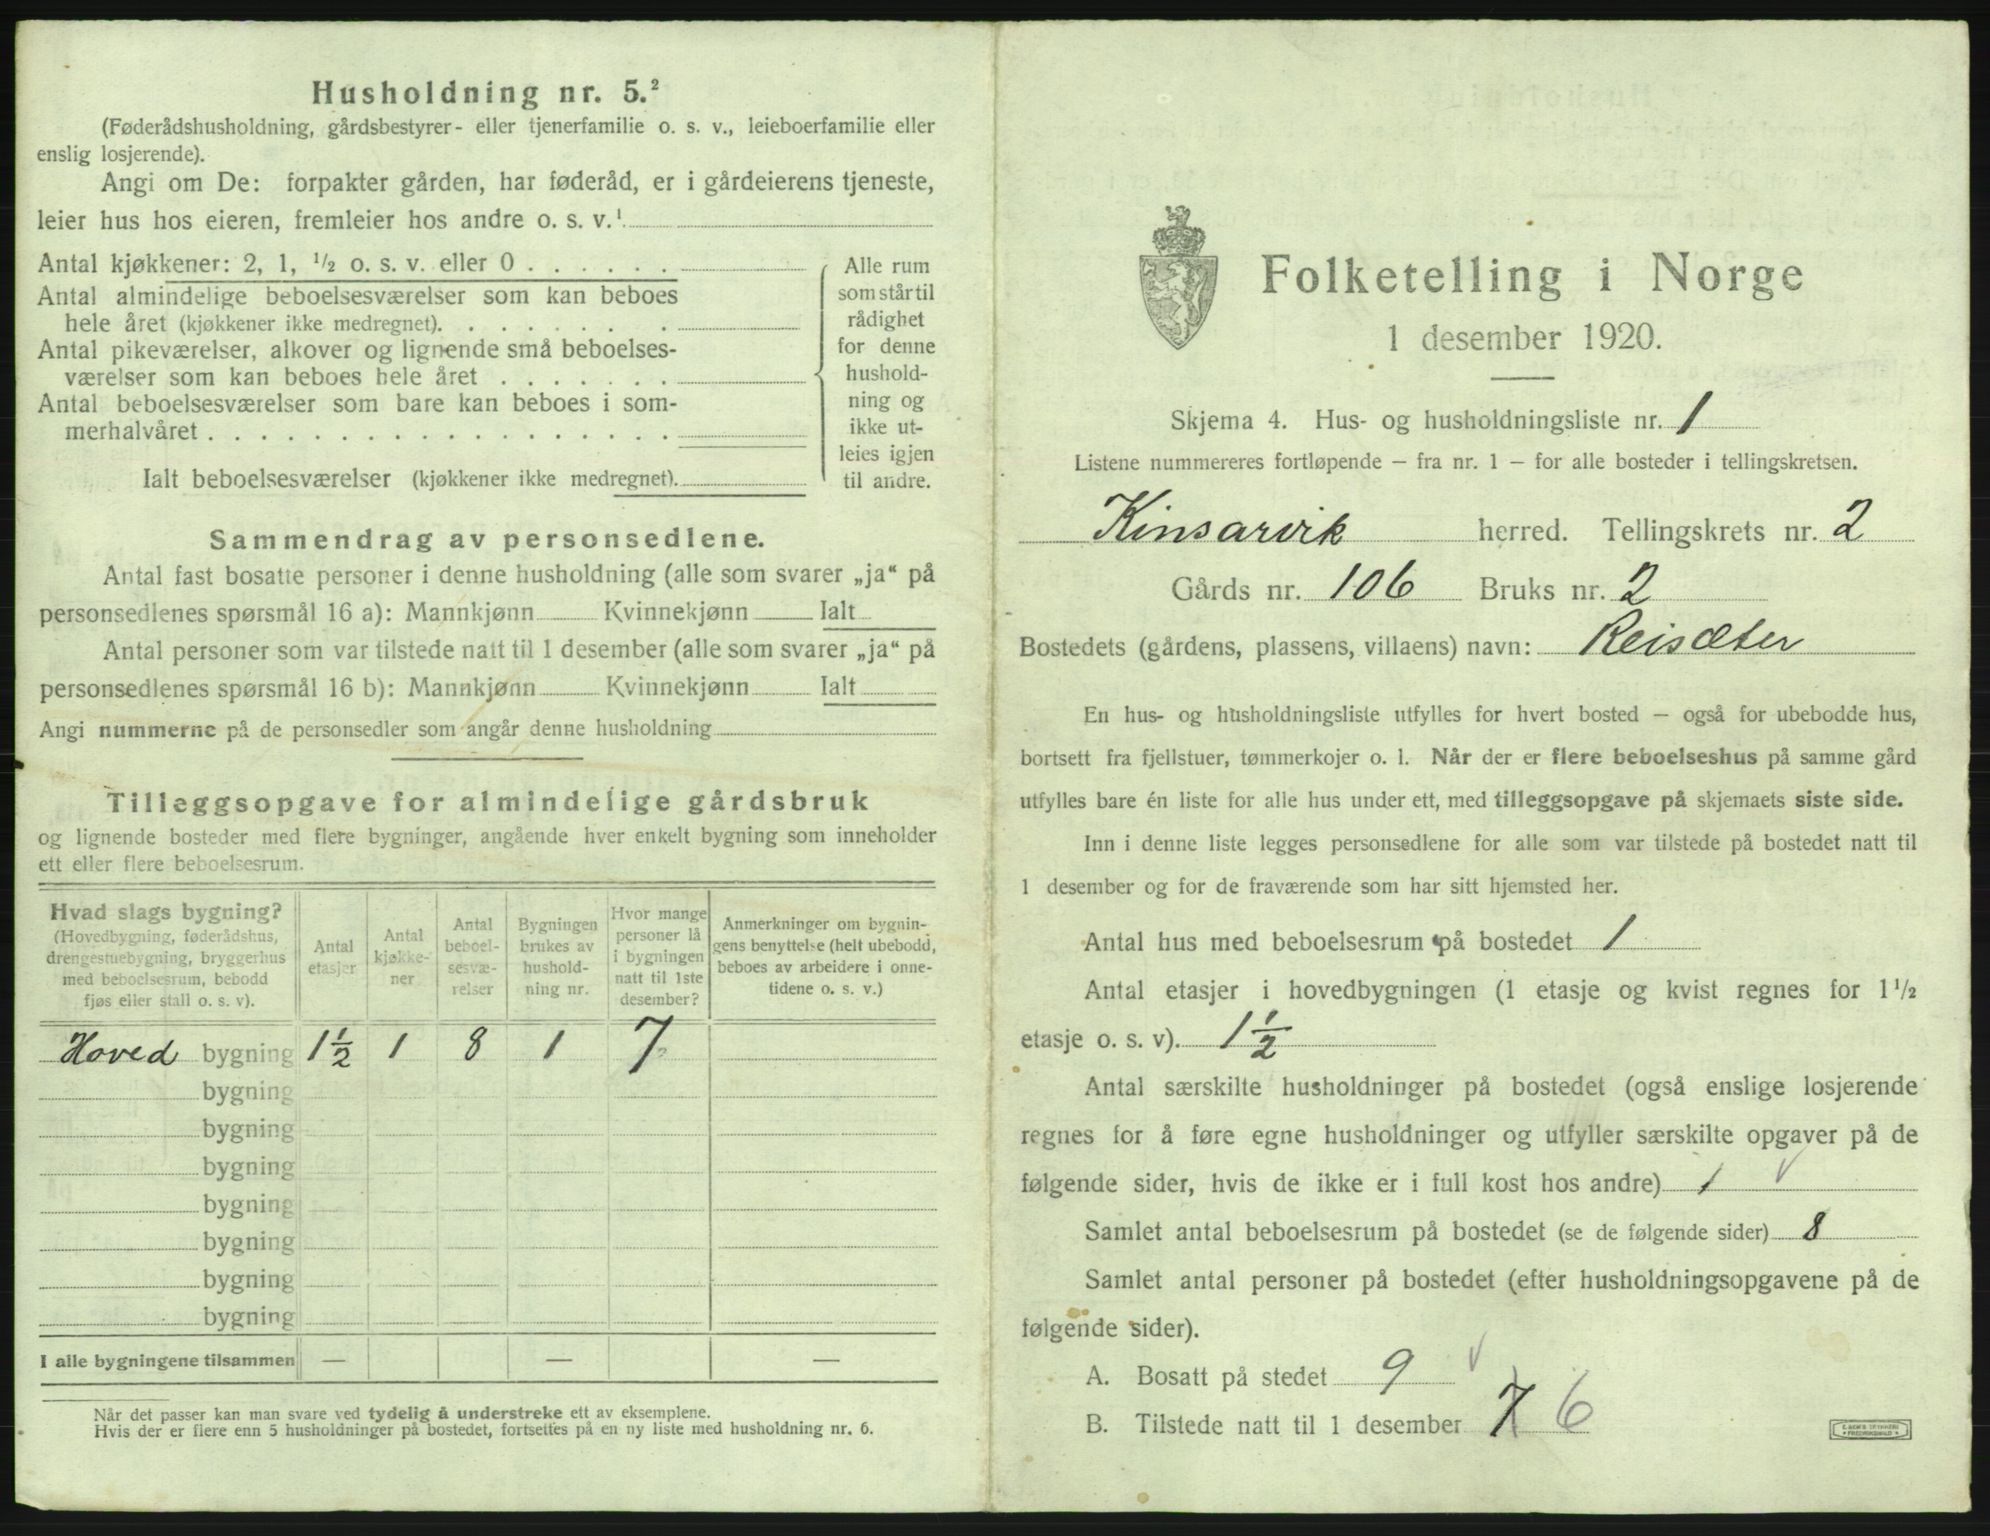 Husholdning nr. 5.²
(Føderådshusholdning, gårdsbestyrer- eller tjenerfamilie o. s. v., leieboerfamilie eller
enslig losjerende).
Angi om De: forpakter gården, har føderåd, er i gårdeierens tjeneste,
leier hus hos eieren, fremleier hos andre o. s. v.¹
Antal kjøkkener: 2, 1, ½ o. s. v. eller 0 . . . . . .
Antal almindelige beboelsesværelser som kan beboes
hele året (kjøkkener ikke medregnet). . . . . . . .
Antal pikeværelser, alkover og lignende små beboelses-
værelser som kan beboes hele året . . . . . . .
Antal beboelsesværelser som bare kan beboes i som-
merhalvåret . . . . . . . . . . . . . . . . . .
Ialt beboelsesværelser (kjøkkener ikke medregnet).
Alle rum
som står til
rådighet
for denne
hushold-
ning og
ikke ut-
leies igjen
til andre.
Sammendrag av personsedlene.
Antal fast bosatte personer i denne husholdning (alle som svarer „ja“ på
personsedlenes spørsmål 16 a): Mannkjønn Kvinnekjønn Ialt
Antal personer som var tilstede natt til 1 desember (alle som svarer „ja“ på
personsedlenes spørsmål 16 b): Mannkjønn Kvinnekjønn Ialt
Angi nummerne på de personsedler som angår denne husholdning
Tilleggsopgave for almindelige gårdsbruk
og lignende bosteder med flere bygninger, angående hver enkelt bygning som inneholder
ett eller flere beboelsesrum.
Hvad slags bygning?
(Hovedbygning, føderådshus,
drengestuebygning, bryggerhus
med beboelsesrum, bebodd
fjøs eller stall o. s. v).
Antal
etasjer
Antal
kjøkke-
ner
Antal
beboel-
sesvæ-
relser
Bygningen
brukes av
hushold-
ning nr.
Hvor mange
personer lå
i bygningen
natt til 1ste
desember?
Anmerkninger om bygnin-
gens benyttelse (helt ubebodd,
beboes av arbeidere i onne-
tidene o. s. v.)
Hoved bygning 1½ 1 8 1 7
bygning
bygning
bygning
bygning
bygning
bygning
bygning
I alle bygningene tilsammen — — —
Når det passer kan man svare ved tydelig å understreke ett av eksemplene.
Hvis der er flere enn 5 husholdninger på bostedet, fortsettes på en ny liste med husholdning nr. 6.
Folketelling i Norge
1 desember 1920.
Skjema 4. Hus- og husholdningsliste nr. 1
Listene nummereres fortløpende – fra nr. 1 – for alle bosteder i tellingskretsen.
Kinsarvik herred. Tellingskrets nr. 2
Gårds nr. 106 Bruks nr. 2
Bostedets (gårdens, plassens, villaens) navn: Reisæter
En hus- og husholdningsliste utfylles for hvert bosted – også for ubebodde hus,
bortsett fra fjellstuer, tømmerkojer o. l. Når der er flere beboelseshus på samme gård
utfylles bare én liste for alle hus under ett, med tilleggsopgave på skjemaets siste side.
Inn i denne liste legges personsedlene for alle som var tilstede på bostedet natt til
1 desember og for de fraværende som har sitt hjemsted her.
Antal hus med beboelsesrum på bostedet 1
Antal etasjer i hovedbygningen (1 etasje og kvist regnes for 1½
etasje o. s. v). 1½
Antal særskilte husholdninger på bostedet (også enslige losjerende
regnes for å føre egne husholdninger og utfyller særskilte opgaver på de
følgende sider, hvis de ikke er i full kost hos andre) 1
Samlet antal beboelsesrum på bostedet (se de følgende sider) 8
Samlet antal personer på bostedet (efter husholdningsopgavene på de
følgende sider).
A. Bosatt på stedet 9
B. Tilstede natt til 1 desember 7 6